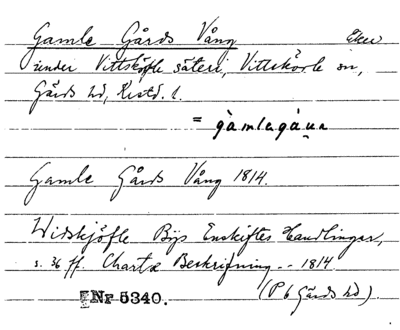 Gamle Gårds Vång
under Vittskövle säteri, Vittskövle sn,
Gärds hd, Kristd. l.
= gàmlagáɳ
Gamle Gårds Vång 1814.
Widskjöfle Bys Enskiftes Handlingar,
s. 36 ff. Chartæ Beskrifning -- 1814.
(P 6 Gärds hd)
ENr 5340.